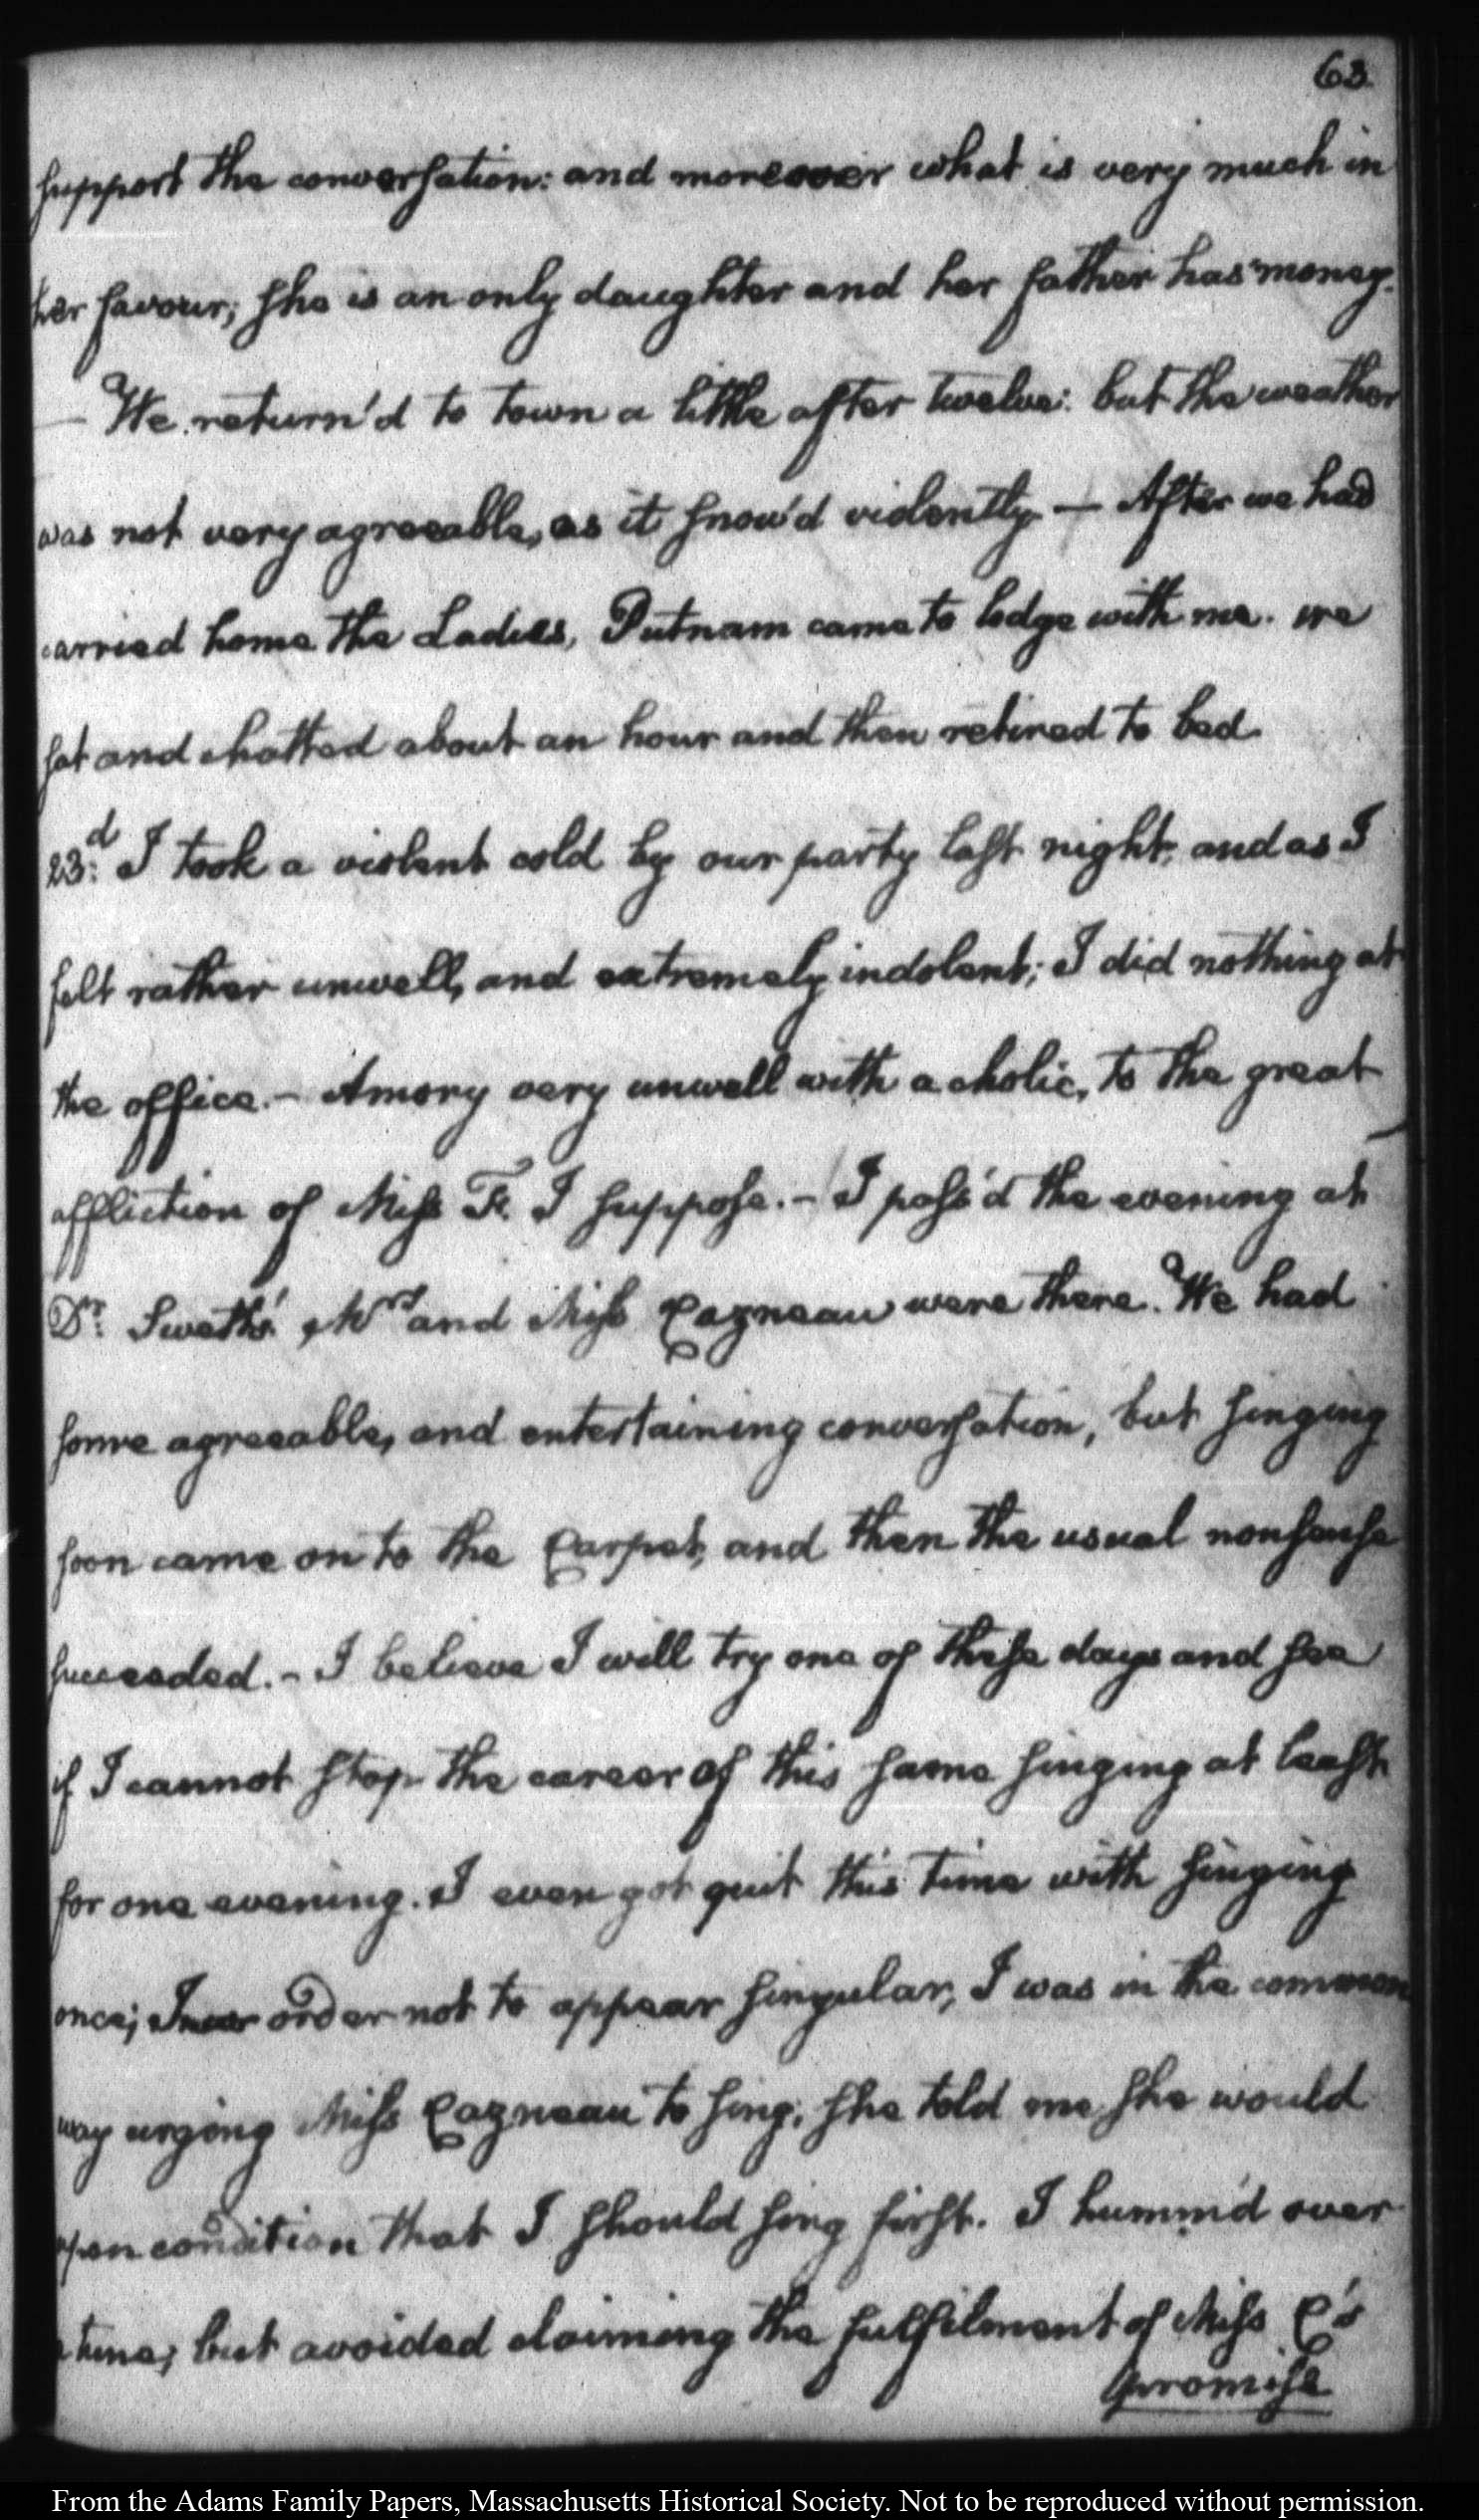 63
support the conversation: and moreover what is very much in
her favour; she is an only daughter and her father has money.
— We return'd to town a little after twelve: but the weather
was not very agreeable, as it snow'd violently — After we had
carried home the Ladies, Putnam came to lodge with me. we
sat and chatted about an hour and then retired to bed.
23.d I took a violent cold by our party last night, and as I
felt rather unwell, and extremely indolent; I did nothing at
the office. - Amory very unwell with a cholic, to the great
affliction of Miss F. I suppose. - I pass'd the evening at
Dr. Swett's. Mrs and Miss Cazneau were there. We had
some agreeable, and entertaining conversation, but singing
soon came on to the Carpet, and then the usual nonsense
succeeded. - I believe I will try one of these days and see
if I cannot stop the career of this same singing at least
for one evening. I even got quit this time with singing
once; In order not to appear singular, I was in the common
way urging Miss Cazneau to sing; she told me she would
upon condition that I should sing first. I humm'd over
a tune; but avoided claiming the fulfilment of Miss C's
promise
From the Adams Family Papers, Massachusetts Historical Society. Not to be reproduced without permission.